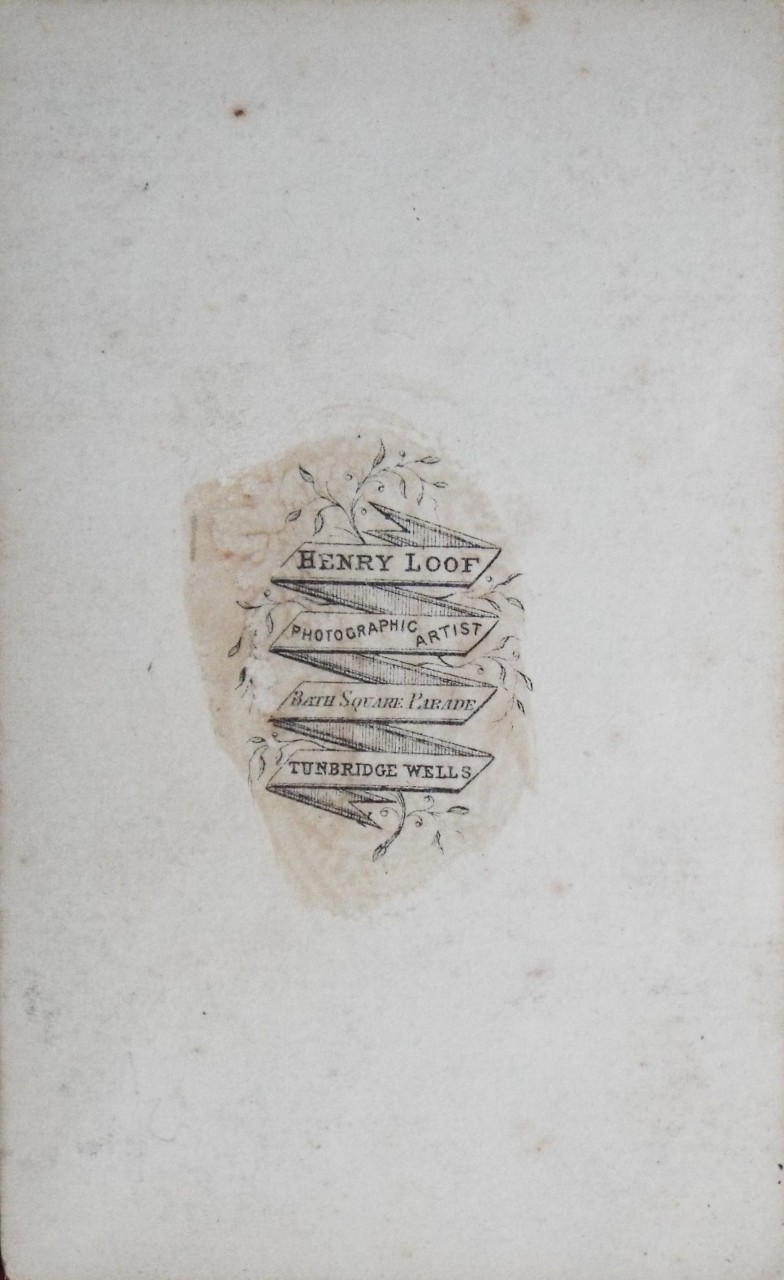 HENRY LOOF
PHOTOGRAPHIC ARTIST
BATH SQUARE PARADE
TUNBRIDGE WELLS